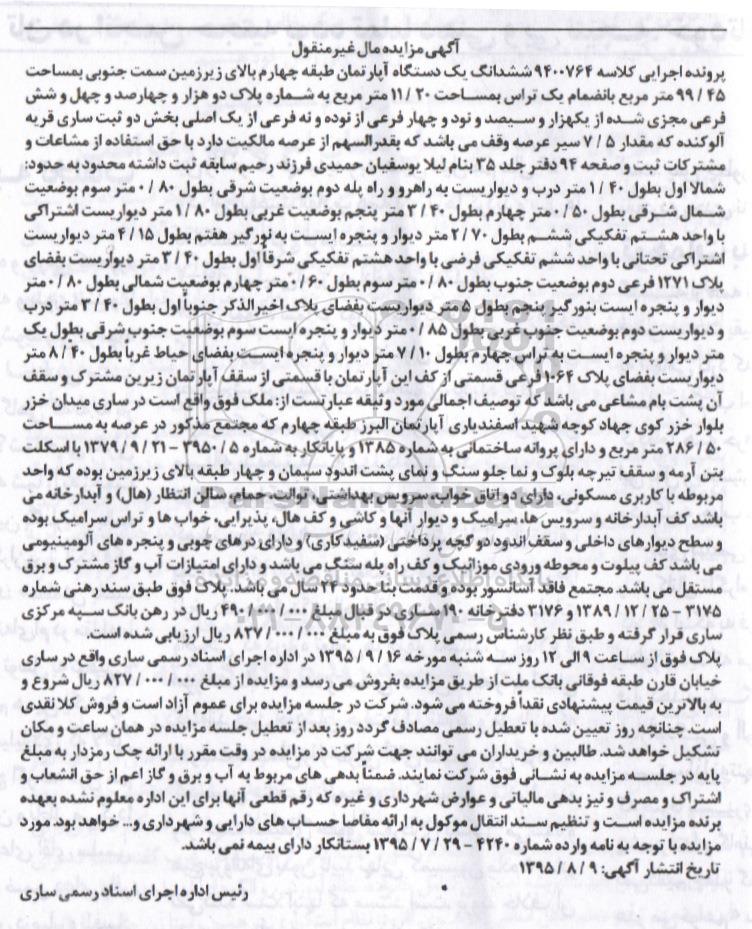 آگهی مزایده مال غیر منقول
پرونده اجرایی کلاسه ۹۴۰۰۷۶۴ ششدانگ یک دستگاه آپارتمان طبقه چهارم بالای زیرزمین سمت جنوبی بمساحت
۴۵ / ۹۹ متر مربع بانضمام یک تراس بمساحت ۲۰ / ۱۱ متر مربع به شماره پلاک دو هزار و چهارصد و چهل و شش
فرعی مجزی شده از یکهزار و سیصد و نود و چهار فرعی از نوده و نه فرعی از یک اصلی بخش دو ثبت ساری قریه
آلوکنده که مقدار ۵ / ۷ سیر عرصه وقف می باشد که بقدرالسهم از عرصه مالکیت دارد با حق استفاده از مشاعات و
مشترکات ثبت و صفحه ۹۴ دفتر جلد ۳۵ بنام لیلا یوسفیان حمیدی فرزند رحیم سابقه ثبت داشته محدود به حدود:
شمالا اول بطول ۴۰ / ۱ متر درب و دیواریست به راهرو و راه پله دوم بوضعیت شرقی بطول ۸۰ / ۰ متر سوم بوضعیت
شمال شرقی بطول ۵۰ / ۰ متر چهارم بطول ۴۰ / ۳ متر پنجم بوضعیت غربی بطول ۸۰ / ۱ متر دیواریست اشتراکی
با واحد هشتم تفکیکی ششم بطول ۷۰ / ۲ متر دیوار و پنجره ایست به نورگیر هفتم بطول ۱۵ / ۴ متر دیواریست
اشتراکی تحتانی با واحد ششم تفکیکی فرضی با واحد هشتم تفکیکی شرقاً اول بطول ۴۰ / ۳ متر دیواریست بفضای
پلاک ۱۲۷۱ فرعی دوم بوضعیت جنوب بطول ۸۰ / ۰ متر سوم بطول ۶۰ / ۰ متر چهارم بوضعیت شمالی بطول ۸۰ / ۰ متر
دیوار و پنجره ایست بنورگیر پنجم بطول ۵ متر دیواریست بفضای پلاک اخیر الذکر جنوباً اول بطول ۴۰ / ۳ متر درب
و دیواریست دوم بوضعیت جنوب غربی بطول ۸۵ / ۰ متر دیوار و پنجره ایست سوم بوضعیت جنوب شرقی بطول یک
متر دیوار و پنجره ایست به تراس چهارم بطول ۱۰ / ۷ متر دیوار و پنجره ایست بفضای حیاط غرباً بطول ۴۰ / ۸ متر
دیواریست بفضای پلاک ۱۶۴ فرعی قسمتی از کف این آپارتمان با قسمتی از سقف آپارتمان زیرین مشترک و سقف
آن پشت بام مشاعی می باشد که توصیف اجمالی مورد وثیقه عبارتست از: ملک فوق واقع است در ساری میدان خزر
بلوار خزر کوی جهاد کوچه شهید اسفندیاری آپارتمان البرز طبقه چهارم که مجتمع مذکور در عرصه به مساحت
۵۰ / ۲۸۶ متر مربع و دارای پروانه ساختمانی به شماره ۱۳۸۵ و پایانکار به شماره ۵ / ۳۹۵۰ - ۲۱ / ۹ / ۱۳۷۷ با اسکلت
بتن آرمه و سقف تیرچه بلوک و نما جلو سنگ و نمای پشت اندود سیمان و چهار طبقه بالای زیرزمین بوده که واحد
مربوطه با کاربری مسکونی، دارای دو اتاق خواب، سرویس بهداشتی، توالت، حمام، سالن انتظار (هال) و آبدارخانه می
باشد کف آبدارخانه و سرویس ها، سرامیک و دیوار آنها و کاشی و کف هال، پذیرایی، خواب ها و تراس سرامیک بوده
و سطح دیوارهای داخلی و سقف اندود دو گچه پرداختی (سفید کاری) و دارای درهای چوبی و پنجره های آلومینیومی
می باشد کف پیلوت و محوطه ورودی موزائیک و کف راه پله سنگ می باشد و دارای امتیازات آب و گاز مشترک و برق
مستقل می باشد. مجتمع فاقد آسانسور بوده و قدمت بنا حدود ۲۴ سال می باشد. پلاک فوق طبق سند رهنی شماره
۳۱۷۵ - ۲۵ / ۱۲ / ۱۳۸۹ و ۳۱۷۶ دفترخانه ۱۹۰ ساری در قبال مبلغ ۰۰۰ / ۰۰۰ / ۴۹۰ ریال در رهن بانک سپه مرکزی
ساری قرار گرفته و طبق نظر کارشناس رسمی پلاک فوق به مبلغ ۰۰۰ / ۰۰۰ / ۸۲۷ ریال ارزیابی شده است.
پلاک فوق از ساعت ۹ الی ۱۲ روز سه شنبه مورخه ۱۶ / ۹ / ۱۳۹۵ در اداره اجرای اسناد رسمی ساری واقع در ساری
خیابان قارن طبقه فوقانی بانک ملت از طریق مزایده بفروش می رسد و مزایده از مبلغ ۰۰۰ / ۰۰۰ / ۸۲۷ ریال شروع و
به بالاترین قیمت پیشنهادی نقداً فروخته می شود. شرکت در جلسه مزایده برای عموم آزاد است و فروش کلا نقدی
است. چنانچه روز تعیین شده با تعطیل رسمی مصادف گردد روز بعد از تعطیل جلسه مزایده در همان ساعت و مکان
تشکیل خواهد شد. طالبین و خریداران می توانند جهت شرکت در مزایده در وقت مقرر با ارائه چک رمزدار به مبلغ
پایه در جلسه مزایده به نشانی فوق شرکت نمایند. ضمناً بدهی های مربوط به آب و برق و گاز اعم از حق انشعاب و
اشتراک و مصرف و نیز بدهی مالیاتی و عوارض شهرداری و غیره که رقم قطعی آنها برای این اداره معلوم نشده بعهده
برنده مزایده است و تنظیم سند انتقال موکول به ارائه مفاصا حساب های دارایی و شهرداری و... خواهد بود. مورد
مزایده با توجه به نامه وارده شماره ۴۲۴۰ - ۲۹ / ۷ / ۱۳۹۵ بستانکار دارای بیمه نمی باشد.
تاریخ انتشار آگهی: ۹ / ۸ / ۱۳۹۵
رئیس اداره اجرای اسناد رسمی ساری
ParsNamadData
۰۲۱-۸۸۳۴۹۶۷۰-۵